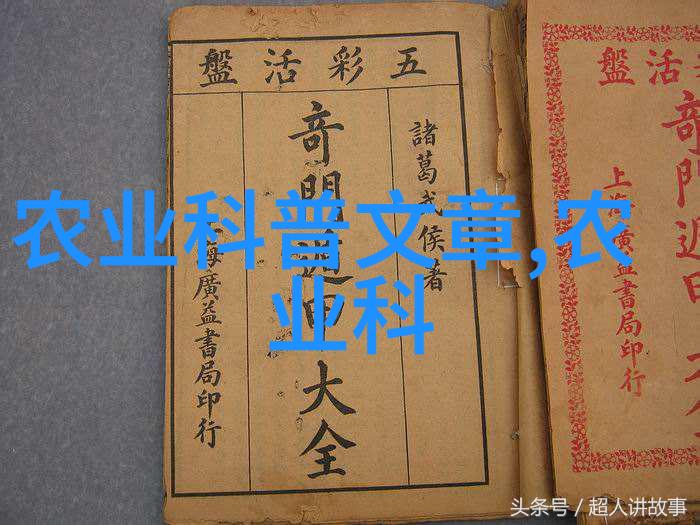 五彩活盤
諸葛武侯著
竒門遁甲大全
海廣益書局印行
农业科普文章,农
业科
活盤
竒門遁甲
上海廣益書局印行
头条号 / 超人讲故事